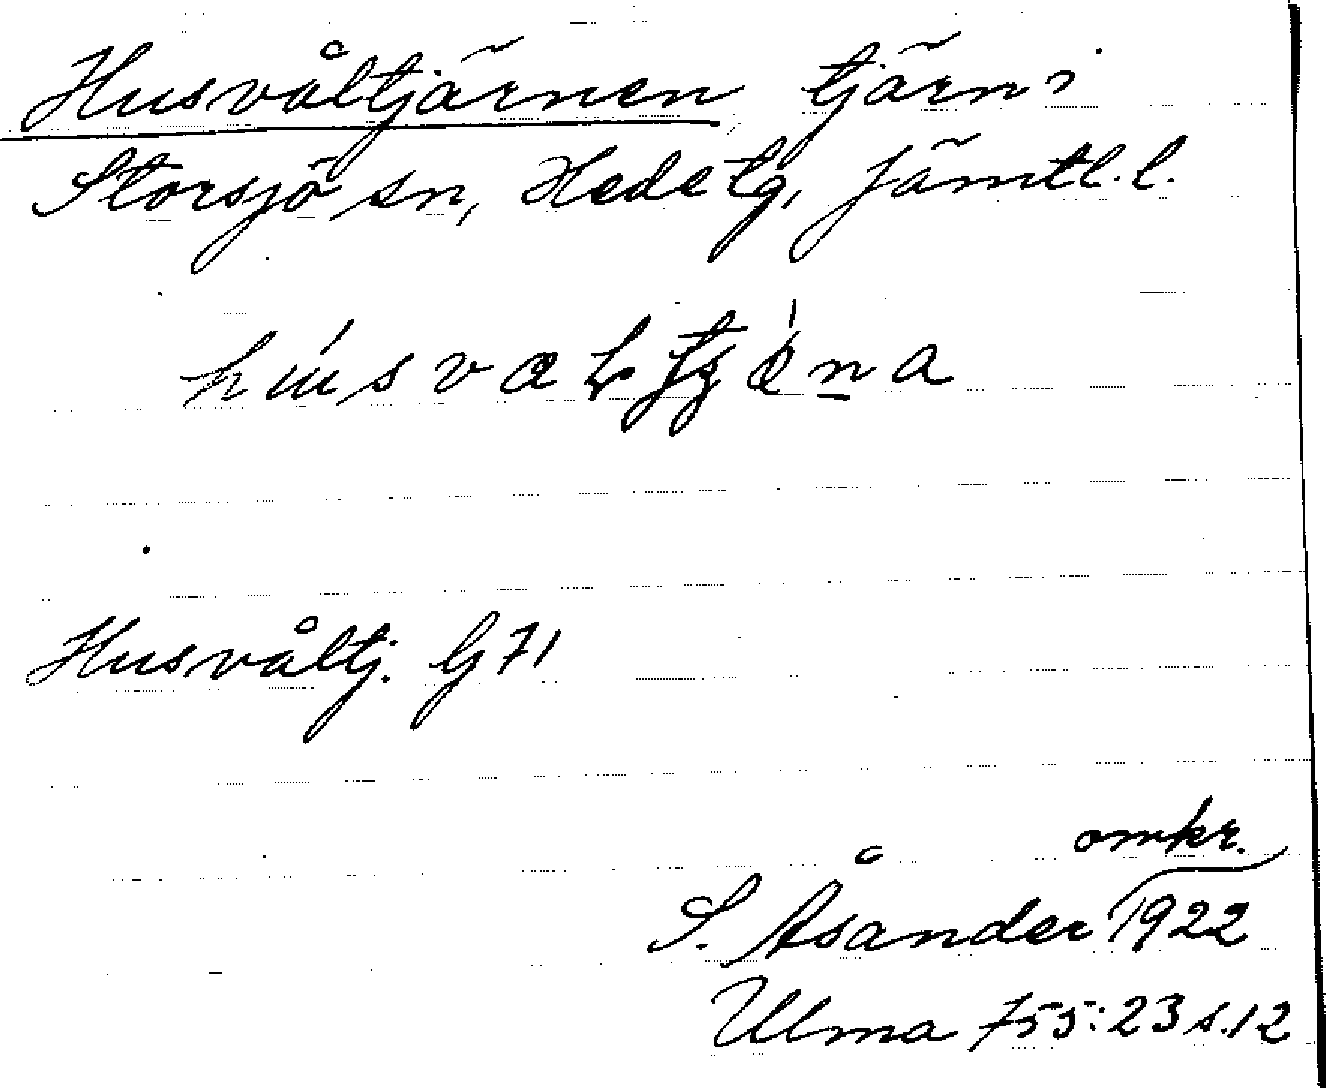 Husvåltjärnen tjärn i
Storsjö sn, Hede tg, Jämtl. l.
Husvåltj. G 71
omkr.
S. Åsander 1922
Ulma 755:23 s.12